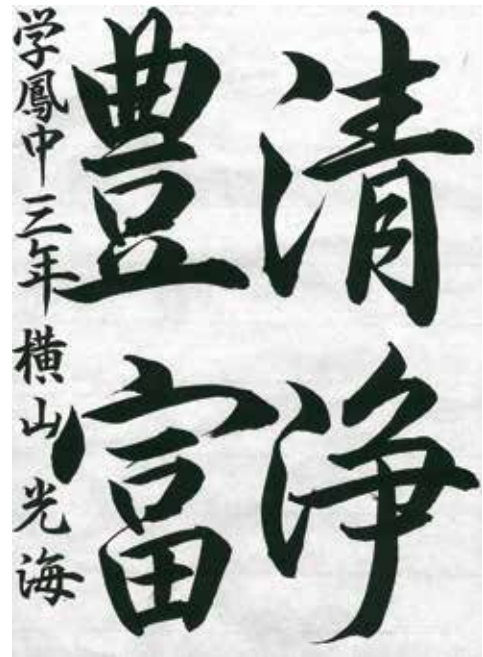 清浄
豊富
学鳳中三年横山光海